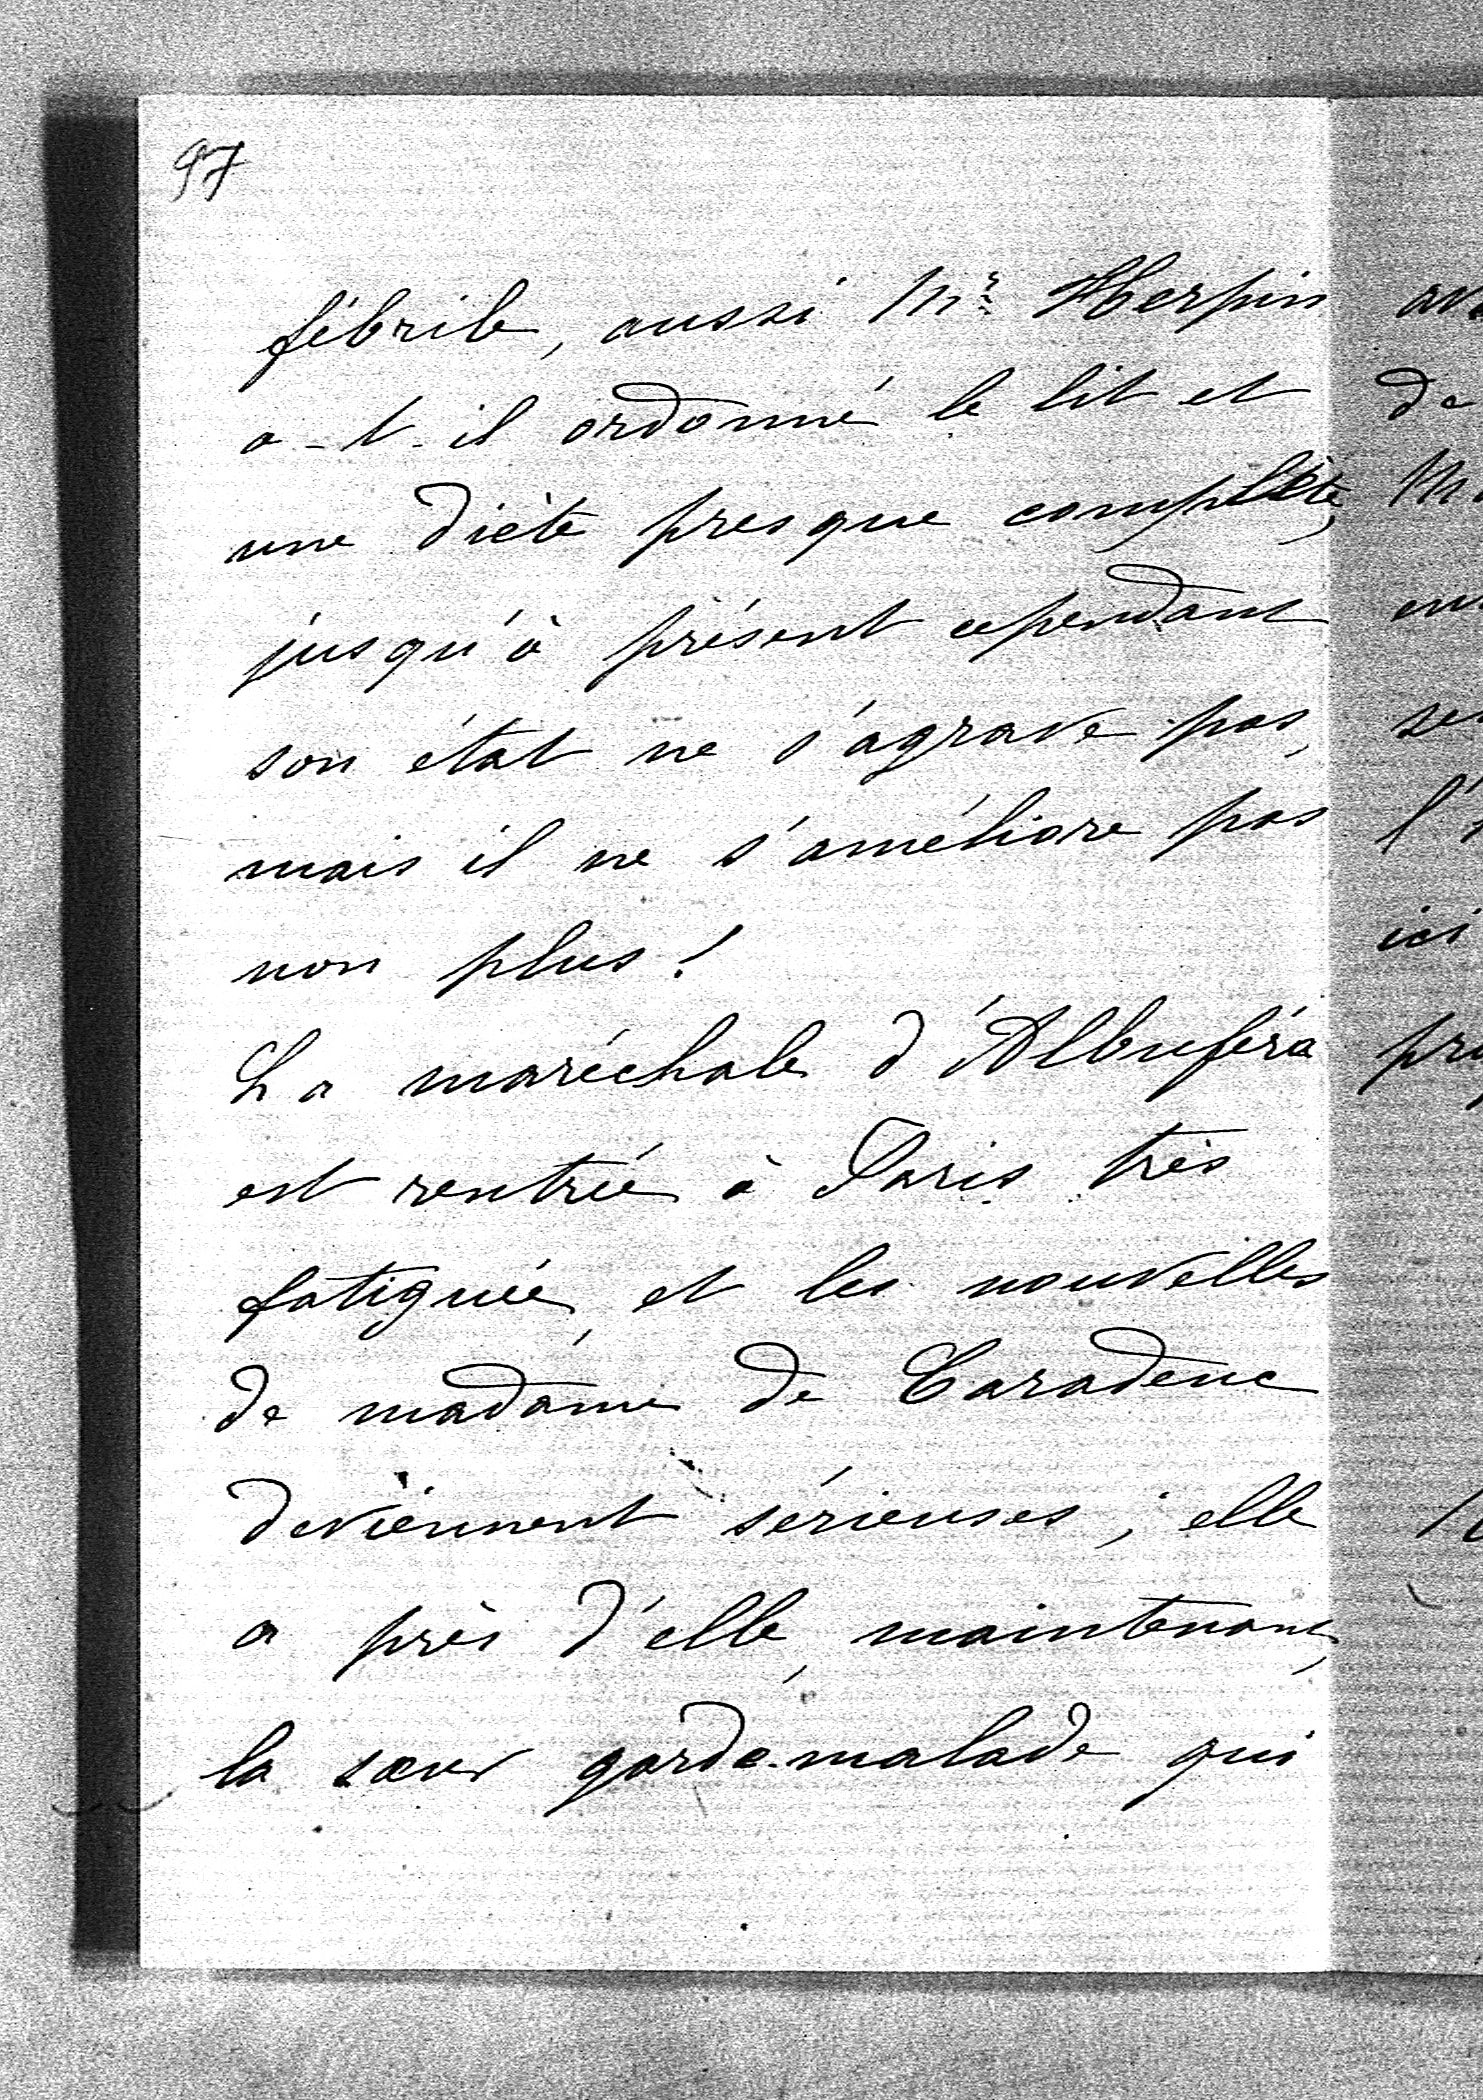 97
fébrile, aussi Mr. Herpin
a-t-il ordonné le lit et
une diète presque complète,
jusqu'à présent cependant
son état ne s'agrave pas,
mais il ne s'améliore pas
non plus!
La maréchale d'Albuféra
est rentrée à Paris très
fatiguée, et les nouvelles
de madame de Caradeuc
deviennent sérieuses; elle
a près d'elle, maintenant,
la sœur garde-malade qui
de
ici